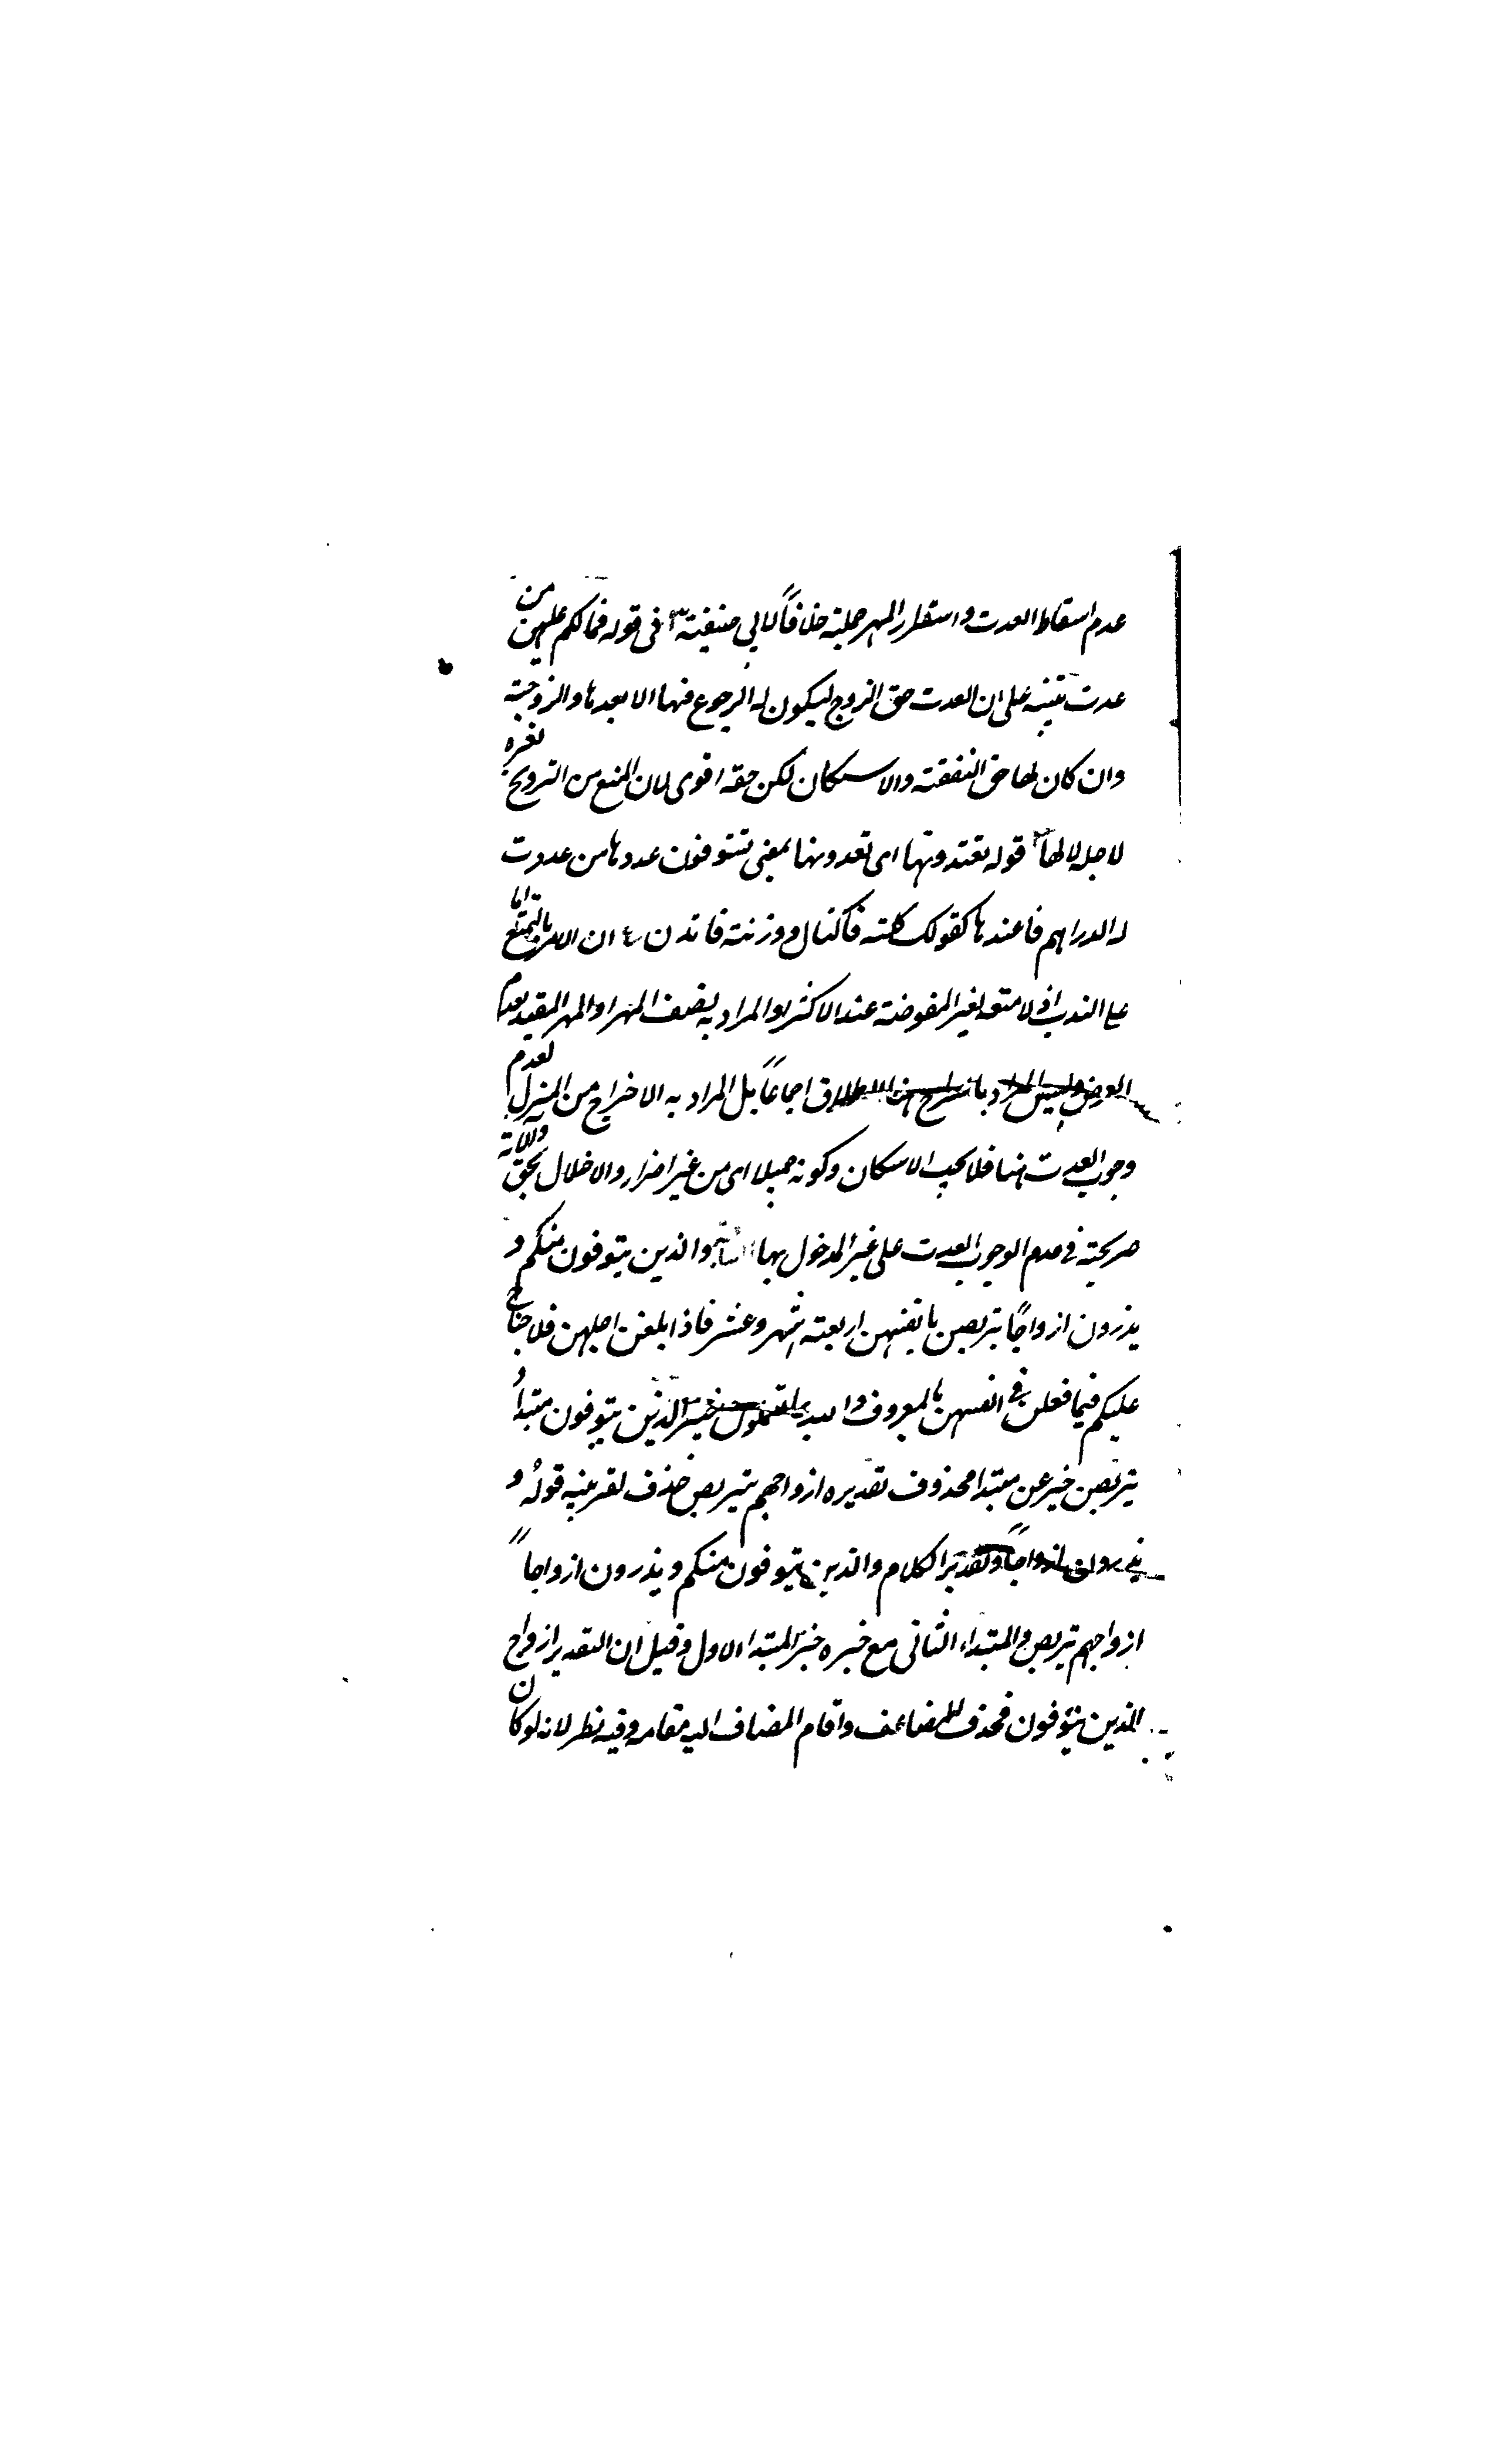 عدم اسقاط العدت و استقرار المهر خلافاً لابي حنيفته ٣ فى قوله فمالكم عليهن من
عدت تنبيه على ان العدت حق الزوج ليكون له الرجوع فيها الا بعدها والزوجته
وان كان لها حق النفقته والاسكان لكن حقه اقوى لان المنع من الترويج لغيره
لاجله لا لها قوله تعتدونها اى تعدونها بمعنى تستوفون عددها من عددت
له الدراهم فاعتدها كقولك كلته فاكتال ووزنته فاتذن ٤ ان الامر بالتمتع اما
على الندب اذ لا متعه لغير المفوضته عند الاكثر او المراد به نصف المهر او المهر المقيد بعدم
العوض وليس المراد بالتسريح هنا الطلاق اجماعاً بل المراد به الاخراج من المنزل لعدم
وجوب العدت منها فلا يجب الاسكان وكونه جميلا اى من غير اضرار والاخلال بحق والاية
صريحته فى عدم الوجوب العدت على غير المدخول بها والذين يتوفون منكم و
يذرون ازواجًا يتربصن بانفسهن اربعته اشهر وعشر فاذا بلغن اجلهن فلا جناح
عليكم فيما فعلن فى انفسهن بالمعروف والله بما تعملون خبير الذين يتوفون مبتدأ و
يتربصن خبر عن مبتدا محذوف تقديره ازواجهم يتربصن حذف لقرينيه قوله و
يذرون ازواجاً وتقدير الكلام والذين يتوفون منكم ويذرون ازواجاً
ازواجهم يتربصن والمبتداء الثانى مع خبره خبر المبتدا الاول وقيل ان التقدير ازواج
الذين يتوفون فحذف المضاف واقام المضاف اليه مقامه وفيه نظر لانه لو كان